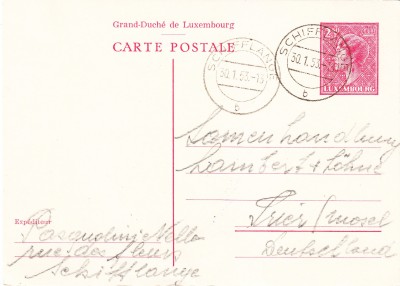 Grand-Duché de Luxembourg
CARTE POSTALE
SCHIFFLANGE
30.1.53.-13
b
SCHIFFLANGE
30.1.53.
b
LUXEMBOURG
Samenhandlung
Lambert + Söhne
Trier/Mosel
Deutschland
Expéditeur
Pasqualini Nello
rue des Fleurs
Schifflange